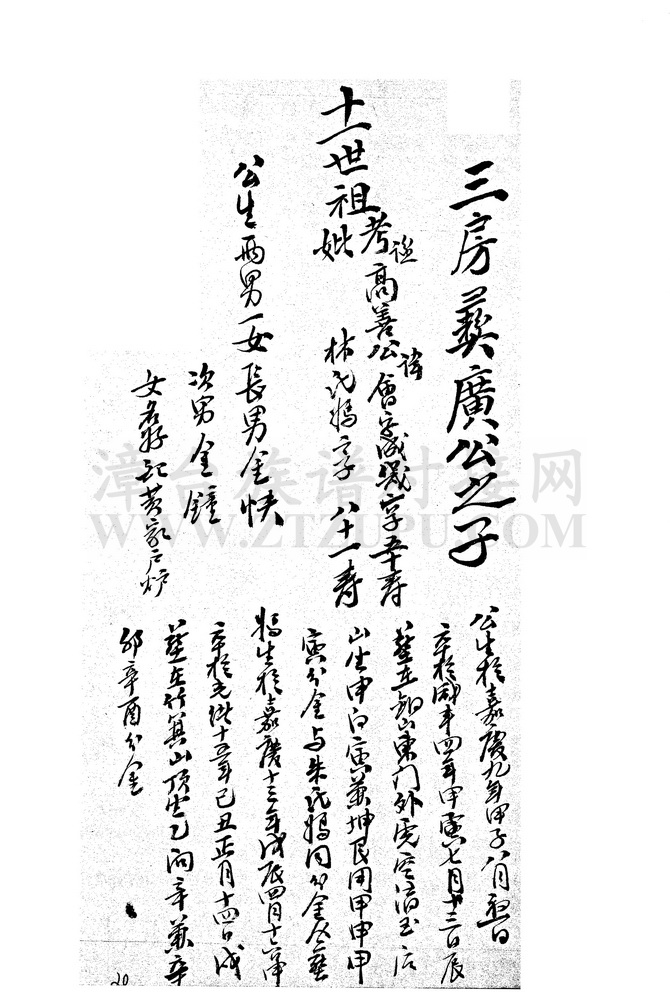 三房彞廣公之子
十一世祖考諡高善公諱會字成 享五十壽
妣 林氏媽享 八十一壽
公生兩男一女長男金快
次男金鐘
女名好 黃家戶
公生於嘉慶九年甲子八月初 日
卒於咸丰四年甲寅七月 三日辰
葬在 山東門外虎空 玉 后
山坐申向寅兼坤艮用甲申甲
寅分金与朱氏媽同分金 葬
媽生於嘉慶十三年戊辰四月十 申
卒於光緒十五年己丑正月十四日戌
葬在竹箕山頂坐乙向辛兼 辛
卯辛酉分金
20
漳台族谱对接网
WWW.ZTZUPU.COM